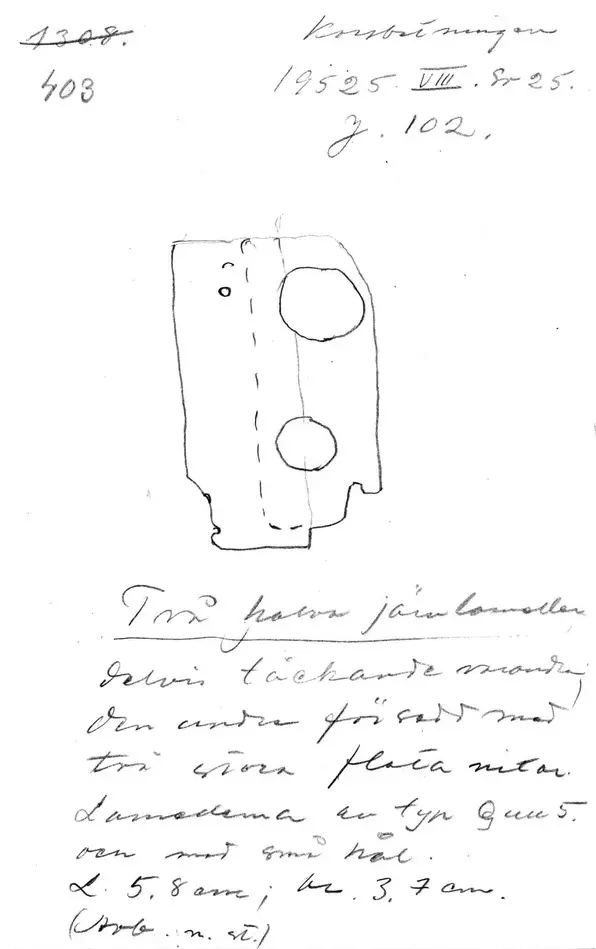 1308.
403
Korsbetningen
19525 VIII. Gr 25.
J. 102.
Två halva järnlameller
delvis täckande varandra,
den andra försedd med
två stora flata nitar.
Lamellerna av typ
och med små hål.
L. 5,8 cm; br. 3,7 cm.
(Avb. n. st.)